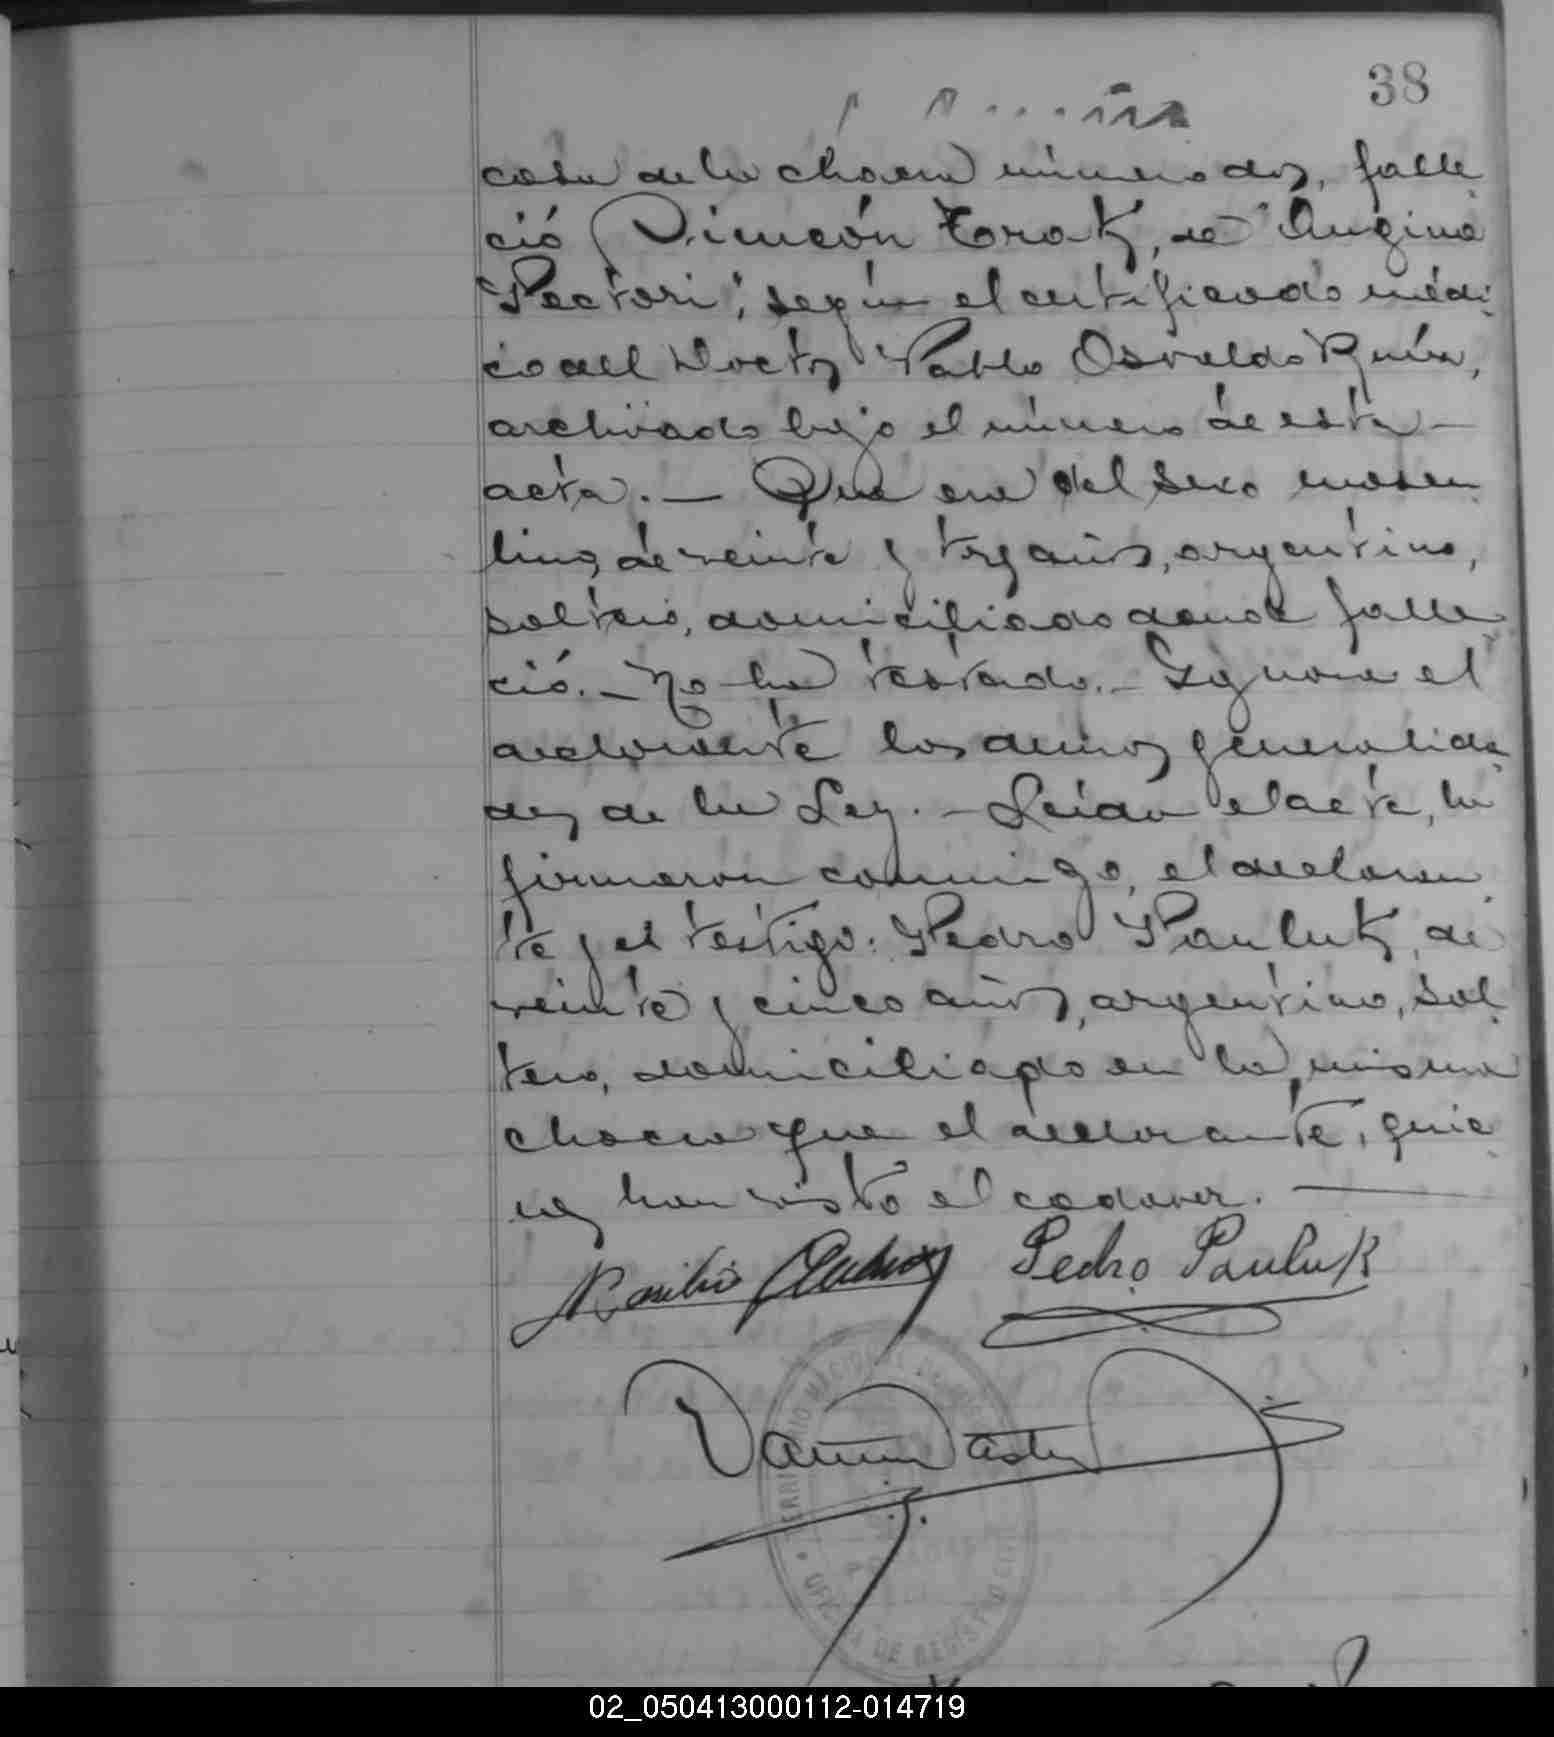 38
casa de la chacra número dos, falle
ció Simeón Zrok, de "Angina
Pectori", según el certificado médi
co del Doctor Pablo Osvaldo
archivado bajo el número de esta
acta. — Que era del sexo mascu
lino, de veinte y tres años, argentino,
soltero, domiciliado donde falle
ció. — No ha testado. — Ignora el
declarante las demás generalida
des de la Ley. — Leída el acta, la
firmaron conmigo, el declaran
te y el testigo: Pedro Pauluk, de
veinte y cinco años, argentino, sol
tero, domiciliado en la misma
chacra que el declarante, quie
nes han visto el cadáver. —
Basilio
Pedro Pauluk
TERRITORIO NACIONAL DE MISIONES
POSADAS
OFICINA DE REGISTRO CIVIL
02_050413000112-014719